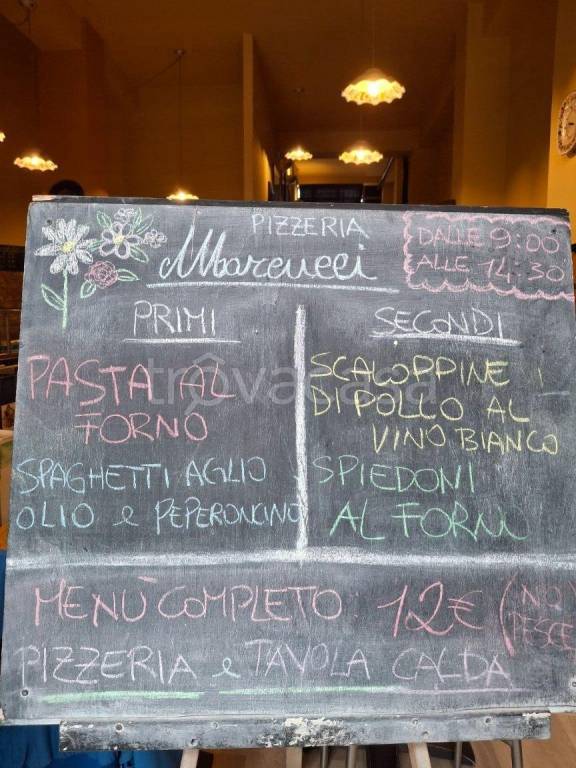 PIZZERIA
Marcucci
DALLE 9:00
ALLE 14:30
PRIMI
PASTA AL
FORNO
SPAGHETTI AGLIO
OLIO e PEPERONCINO
SECONDI
SCALOPPINE
DI POLLO AL
VINO BIANCO
SPIEDONI
AL FORNO
MENÙ COMPLETO 12€ (NO PESCE)
PIZZERIA e TAVOLA CALDA
trovacasa